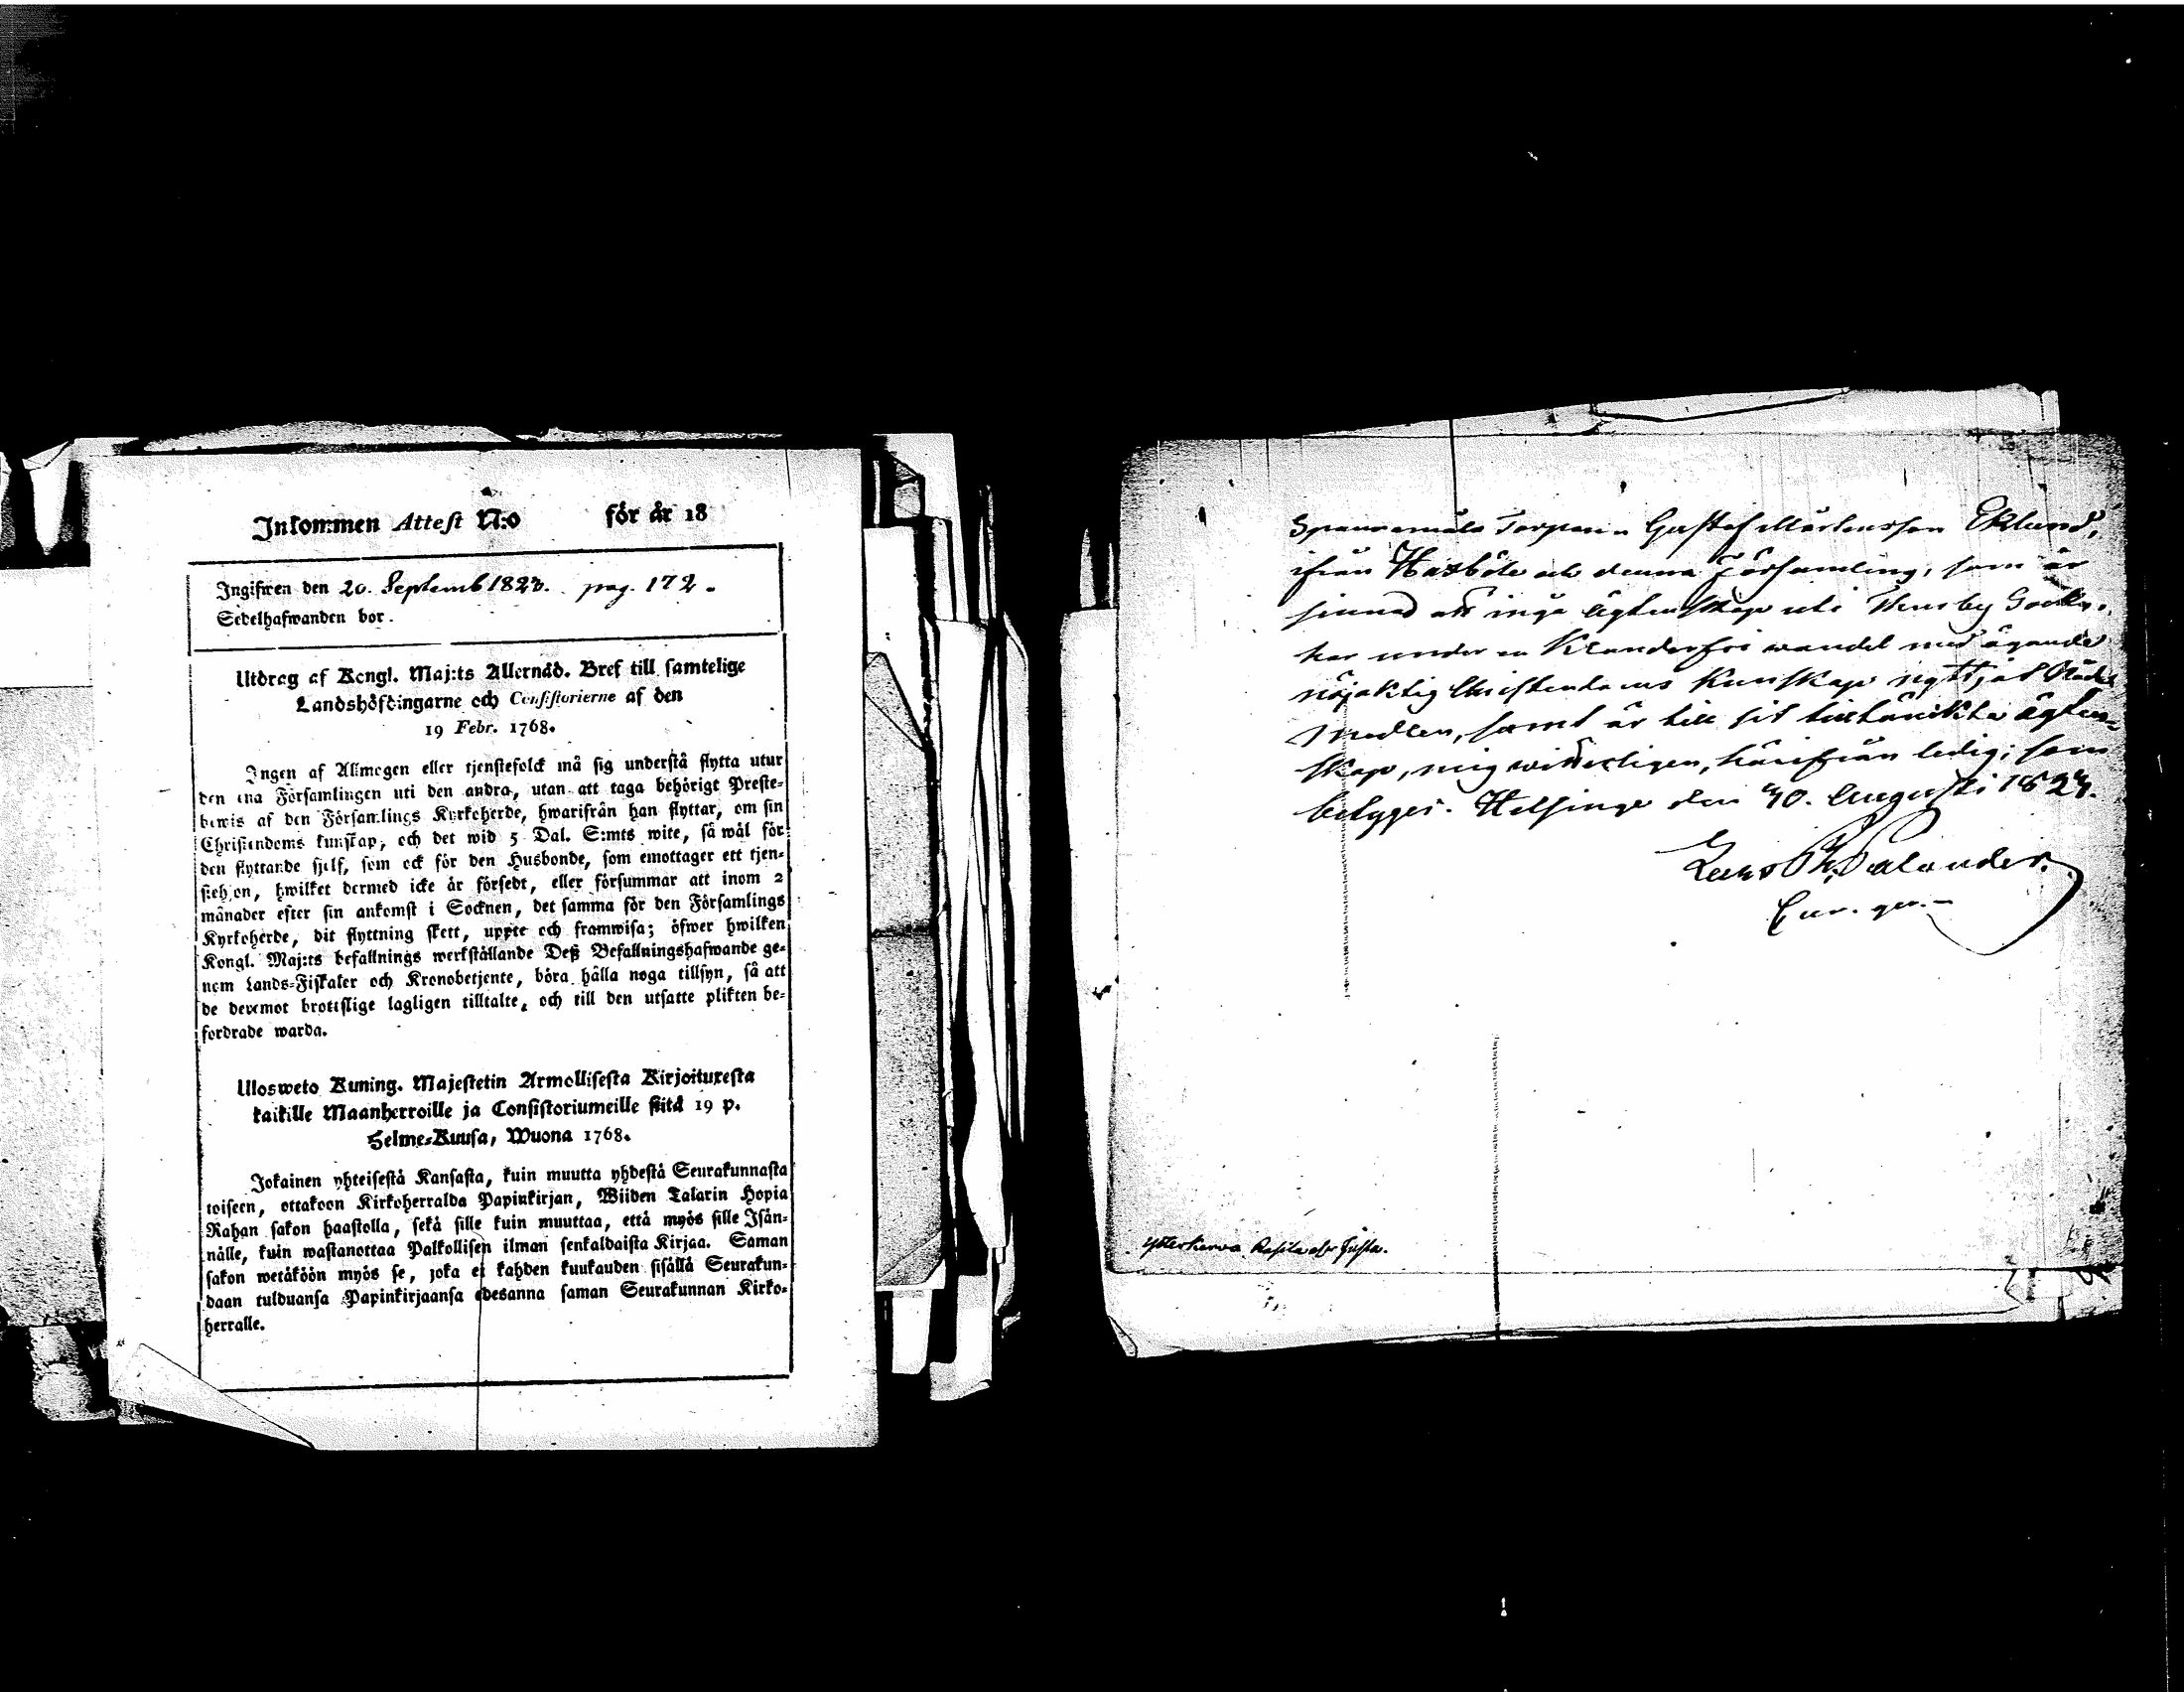 Inkommen Attest N:o för år 18
Ingifwen den 20. Septemb 1823. pag. 172.
Sedelhafwanden bor.
Utdrag af Kongl. Maj:ts Allernåd. Bref till samtelige
Landshöfdingarne och Consistorierne af den
19 Febr. 1768.
Ingen af Allmogen eller tjenstefolck må sig understå flytta utur
den ena Församlingen uti den andra, utan att taga behörigt Preste-
bewis af den Församlings Kyrkoherde, hwarifrån han flyttar, om sin
Christendoms kunskap, och det wid 5 Dal. S:mts wite, så wäl för
den flyttande sjelf, som ock för den Husbonde, som emottager ett tjen-
stehjon, hwilket dermed icke är försedt, eller försummar att inom 2
månader efter sin ankomst i Socknen, det samma för den Församlings
Kyrkoherde, dit flyttning skett, uppte och framwisa; öfwer hwilken
Kongl. Maj:ts befallnings werkställande Deß Befallningshafwande ge-
nom Lands-Fiskaler och Kronobetjente, böra hålla noga tillsyn, så att
de deremot brottslige lagligen tilltalte, och till den utsatte plikten be-
fordrade warda.
Ulosweto Kuning. Majestetin Armollisesta Kirjoituxesta
kaikille Maanherroille ja Consistoriumeille siitä 19 p.
Helme-Kuusa, Wuona 1768.
Jokainen yhteisestä Kansasta, kuin muutta yhdestä Seurakunnasta
toiseen, ottakoon Kirkoherralda Papinkirjan, Wiiden Talarin Hopia
Rahan sakon haastolla, sekä sille kuin muuttaa, että myös sille Isän-
nälle, kuin wastanottaa Palkollisen ilman senkaldaista Kirjaa. Saman
sakon wetäköön myös se, joka ei kahden kuukauden sisällä Seurakun-
daan tulduansa Papinkirjaansa edesanna saman Seurakunnan Kirko-
herralle.
Gustaf Mårtensson Eklund,
ifrån Haxböle och denna Församling, som är
sinnad att ingå ägtenskap uti Thusby Sockn,
har under en Klanderfri wandel med ägande
nöjaktig Christendoms Kunskap nyttjat Nåde
medlen, samt är till sit tilltänckta ägten-
skap, mig witterligen, härifrån ledig; som
betygges. Helsinge den 30. Augusti 1823.
Palander.